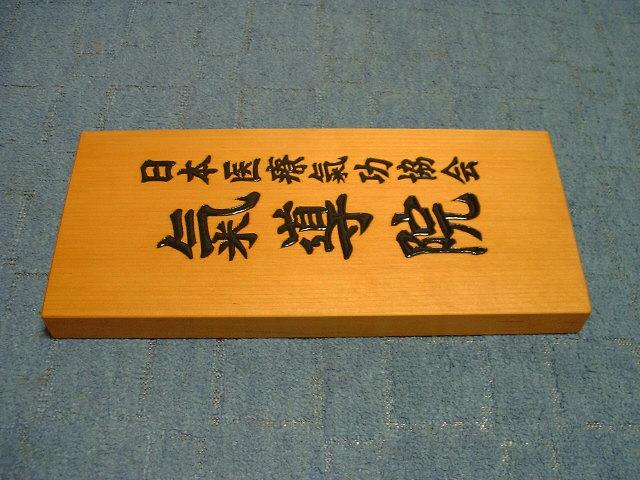 日本医療氣功協会
氣導院